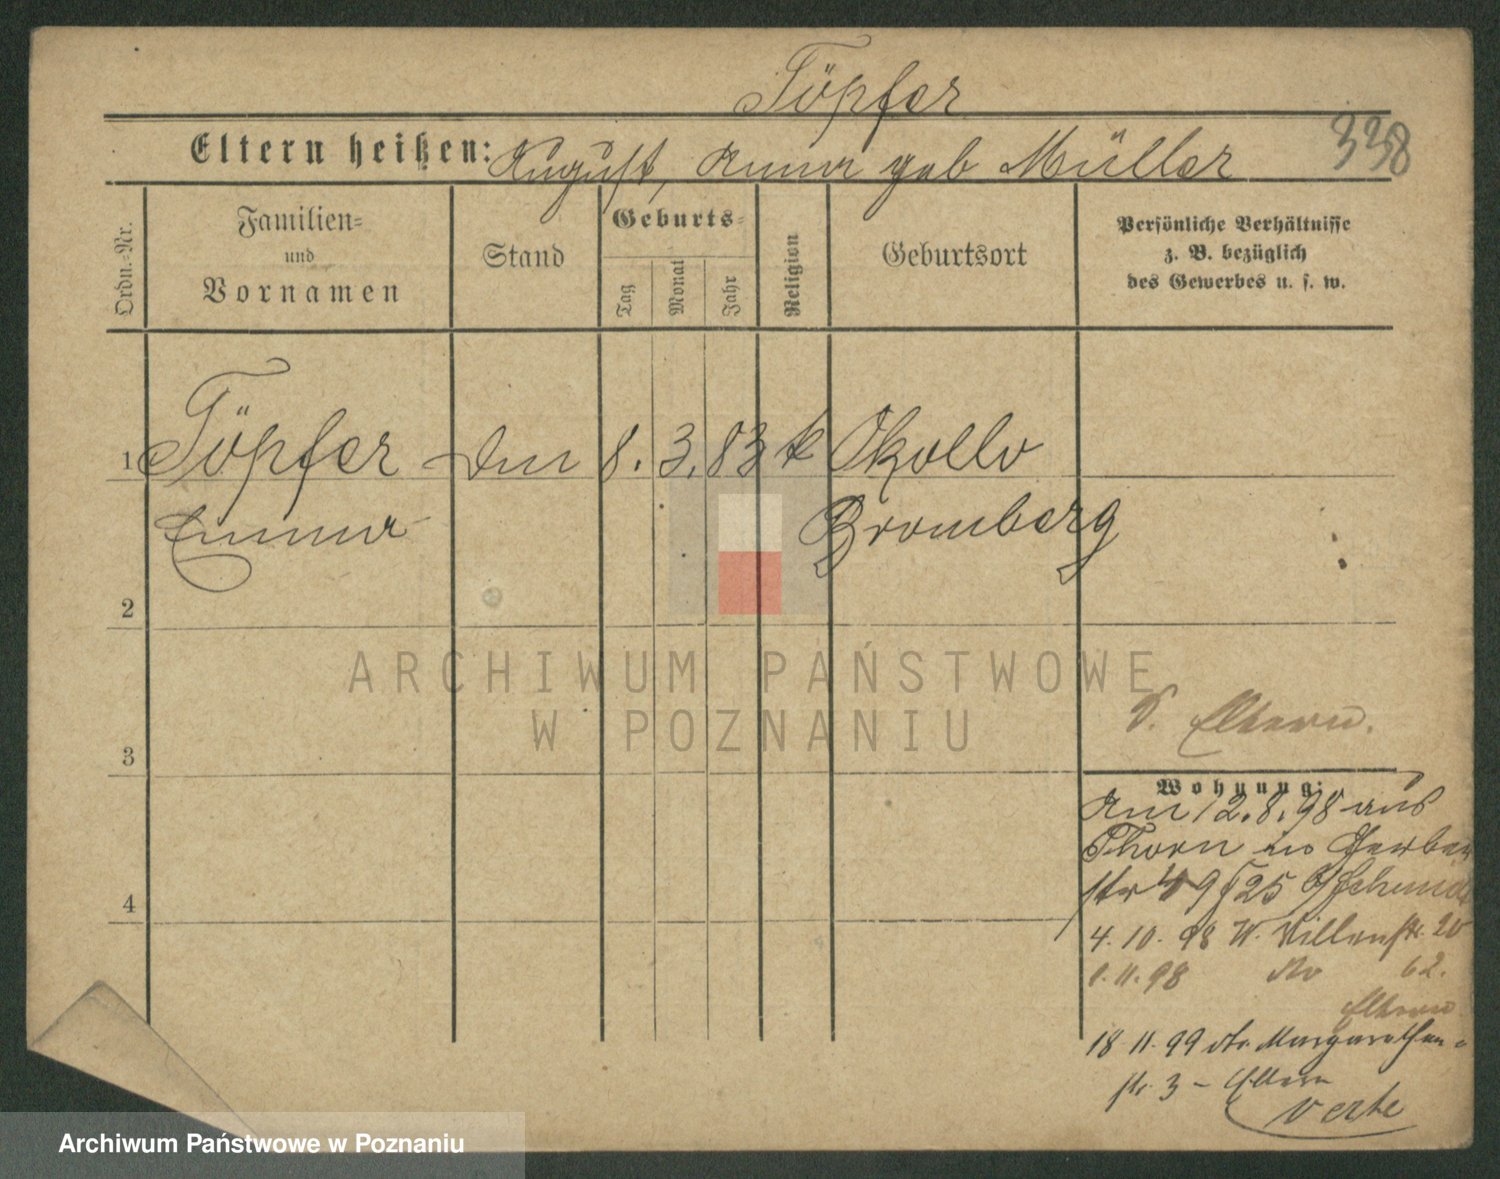 Töpfer
338
Eltern heißen: August, Anna geb Müller
Ordn.-Nr.
Familien-
und
Vornamen
Stand
Geburts-
Tag
Monat
Jahr
Religion
Geburtsort
Persönliche Verhältnisse
z. B. bezüglich
des Gewerbes u. s. w.
1 Töpfer 8. 3. 83 k Okollo
Emma Bromberg
2
ARCHIWUM PAŃSTWOWE
W POZNANIU
3
s. Eltern.
Wohnung:
Am 12.8.98 aus
Thorn in Gerber
str 49 b/Schmidt
4. 10. 98 W. 20
1. 11. 98 62.
Eltern
18 11. 99 Margarethen-
str. 3 - Eltern
4
verte
Archiwum Państwowe w Poznaniu